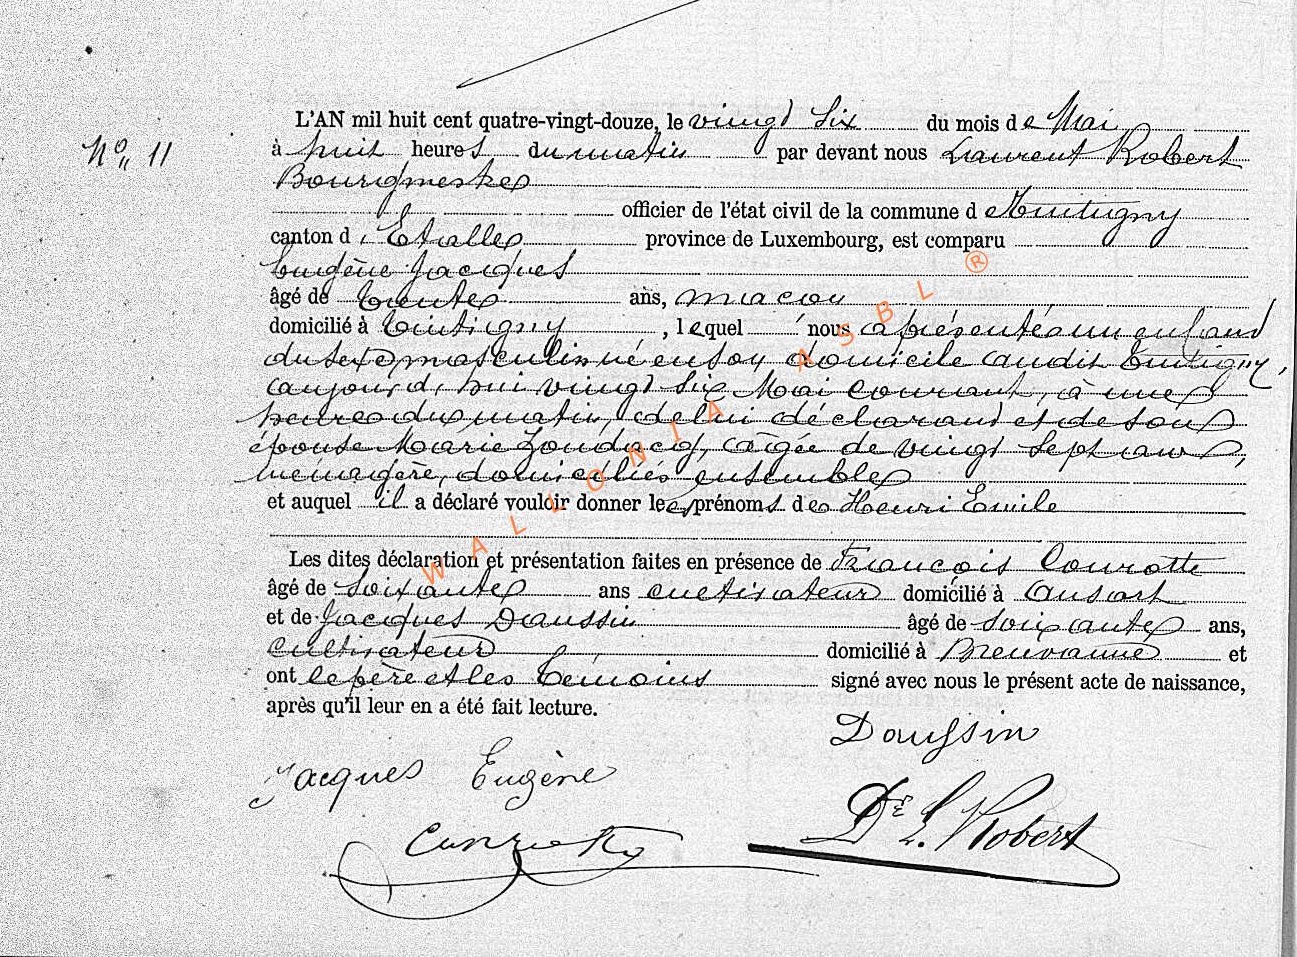 L'AN mil huit cent quatre-vingt-douze, le vingt six du mois de Mai
No 11
à huit heures du matin par devant nous Laurent Robert
Bourgmestre
officier de l'état civil de la commune de Tintigny
canton d'Etalle province de Luxembourg, est comparu
Eugène Jacques
âgé de trente ans, maçon
domicilié à Tintigny, lequel nous a présenté un enfant
du sexe masculin né en son domicile audit Tintigny,
aujourd'hui vingt six Mai courant, à une
heure du matin, de lui déclarant et de son
épouse Marie, âgée de vingt sept ans,
ménagère, domiciliés ensemble
et auquel il a déclaré vouloir donner les prénoms de Henri Emile
Les dites déclaration et présentation faites en présence de François Conrotte
âgé de soixante ans cultivateur domicilié à Ansart
et de Jacques Daussin âgé de soixante ans,
cultivateur domicilié à Breuvanne et
ont le père et les témoins signé avec nous le présent acte de naissance,
après qu'il leur en a été fait lecture.
Daussin
Jacques Eugène
Dr L. Robert
Conrotte
WALLONIA ASBL ®